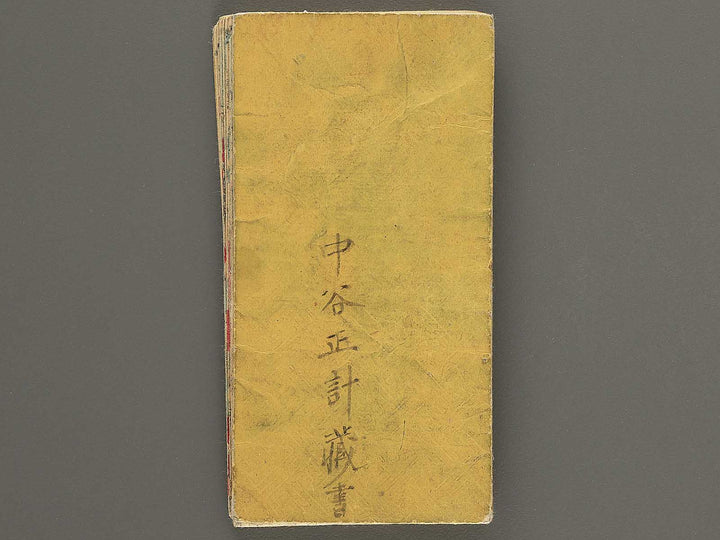 中谷正計藏書